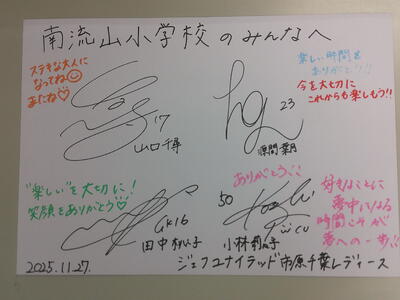 南流山小学校のみんなへ
ステキな大人に
なってね
またね♡
17
山口千尋
楽しい時間を
ありがとう!!!
今を大切に
これからも楽しもう!!
23
"楽しい"を大切に!
笑顔をありがとう♡
GK16
田中桃子
ありがとう!!
50
小林莉々子
好きなことに
夢中になる
時間こそが
夢への一歩!!
2025.11.27.
ジェフユナイテッド市原千葉レディース